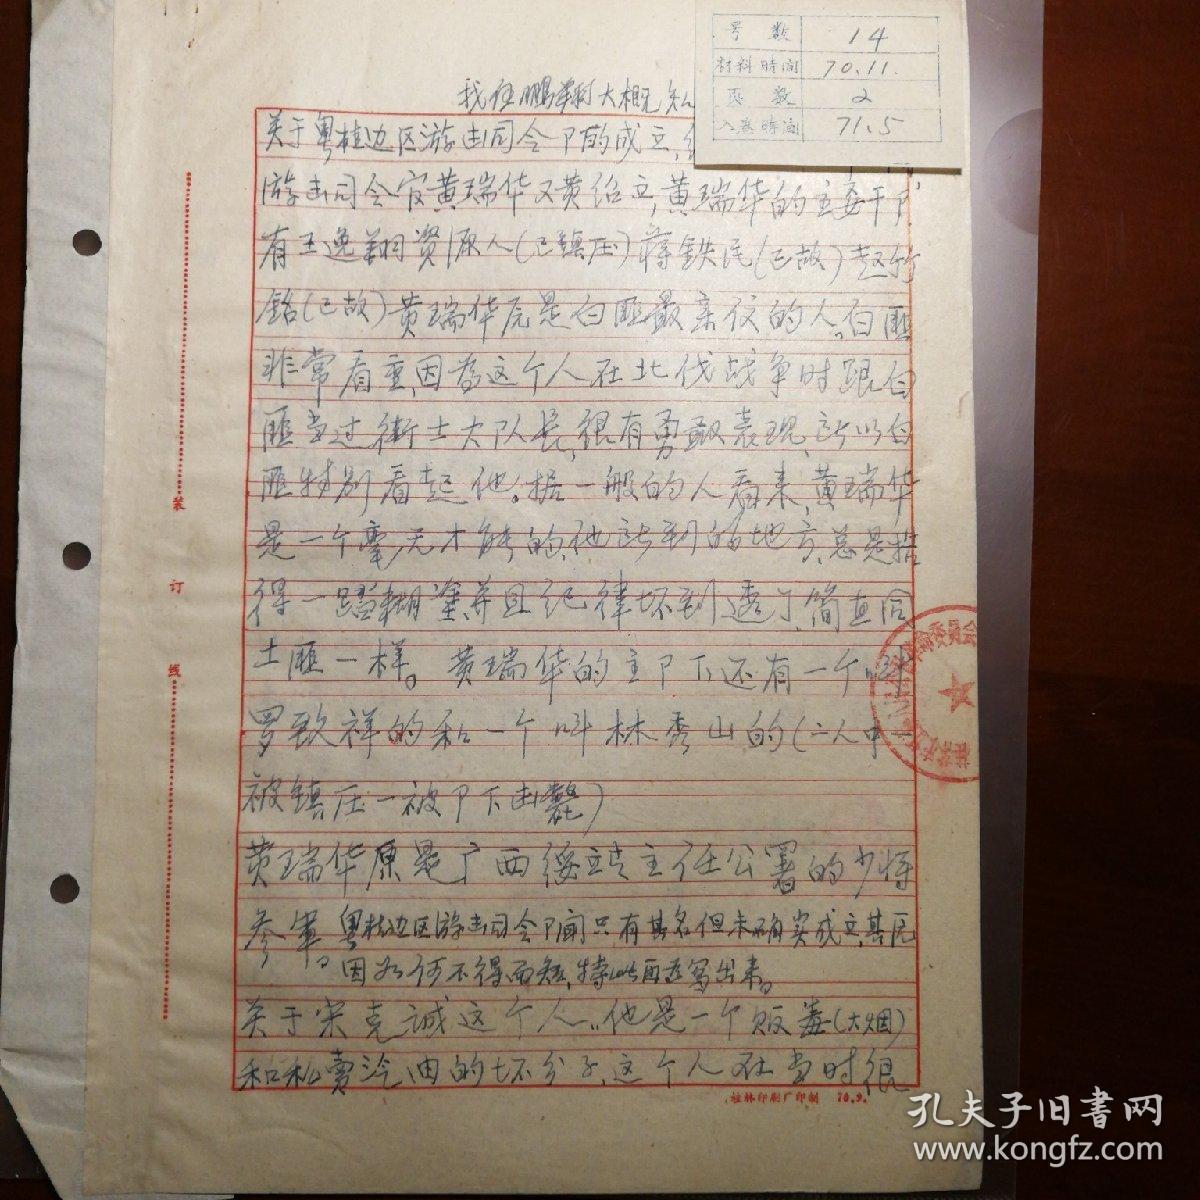 号 数 14
材料时间 70.11.
页 数 2
入卷时间 71.5
我伍鹏翔大概知
关于粤桂边区游击司令卩的成立,
游击司令官黄瑞华又黄绍立,黄瑞华的主要干卩
有王逸翔资源人(已镇压)蒋铁民(已故)赵竹
铭(已故)黄瑞华原是白匪最亲仪的人。白匪
非常看重,因为这个人在北伐战争时跟白
匪当过衛士大队长,很有勇敢表现,所以白
匪特别看起他。据一般的人看来,黄瑞华
是一个毫无才能的,他所到的地方,总是搞
得一蹋糊塗,并且纪律坏到透了,简直同
土匪一样。黄瑞华的主卩下还有一个叫
罗致祥的和一个叫林秀山的(二人中一
被镇压一被卩下击毙)
黄瑞华原是广西绥靖主任公署的少将
参军。粤桂边区游击司令卩闻只有其名但未确实成立,其原
因如何不得而知,特此再述写出来。
关于宋克诚这个人,他是一个贩毒(大烟)
和私賣汽油的坏分子,这个人在当时很
装
订
线
革命委员会
桂林印刷厂印制 70.9.
孔夫子旧书网
www.kongfz.com